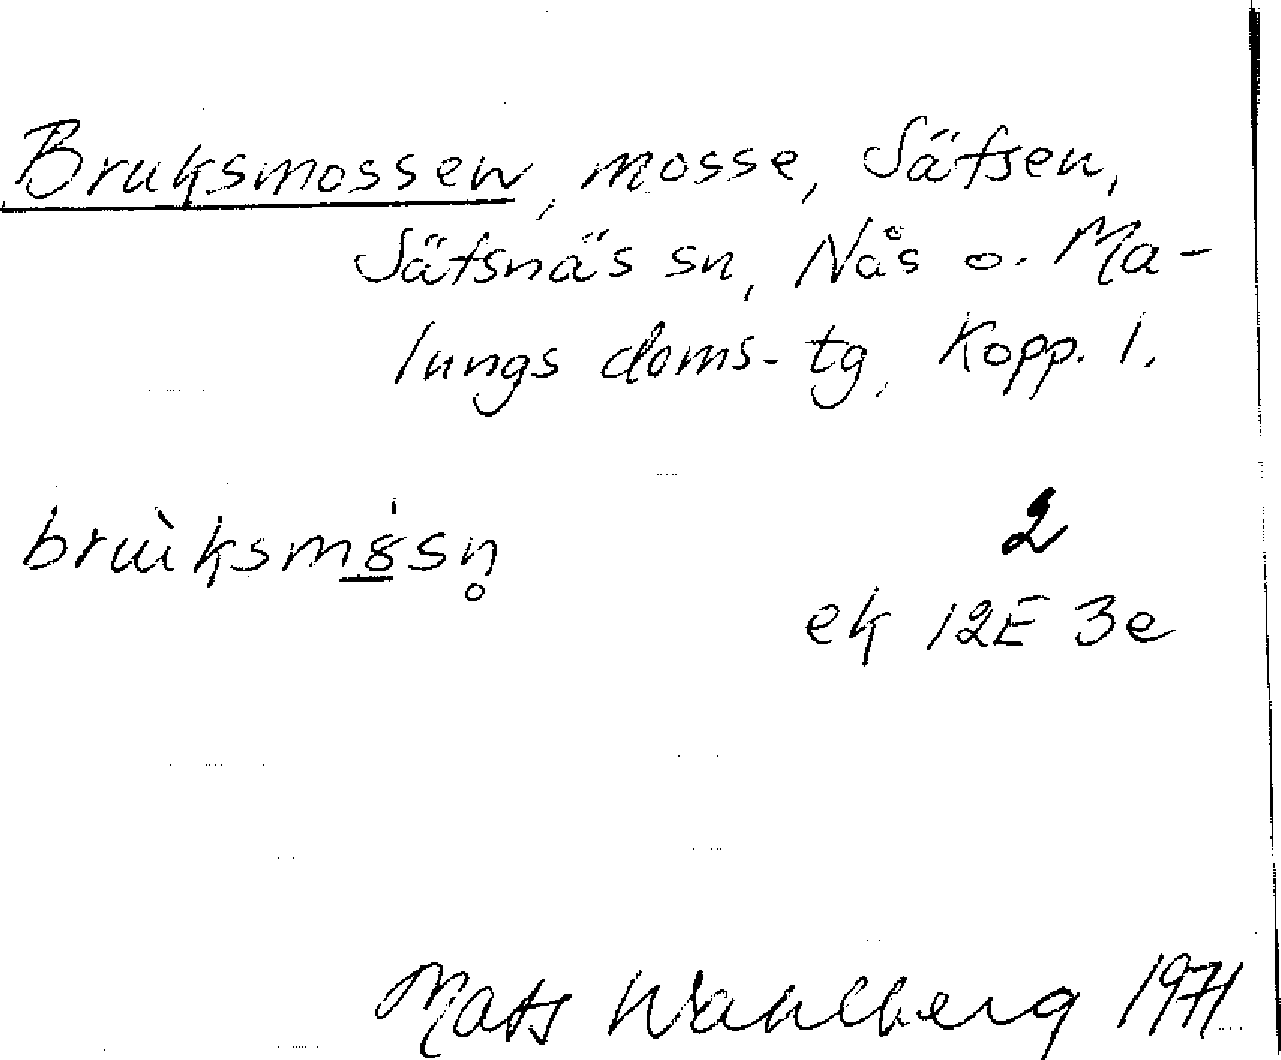 Bruksmossen, mosse, Säfsen,
Säfsnäs sn, Nås o. Ma-
lungs doms-tg, Kopp. l.
brɯ̀ksm8̲̍sn̥
2
ek 12E 3e
Mats Wahlberg 1971